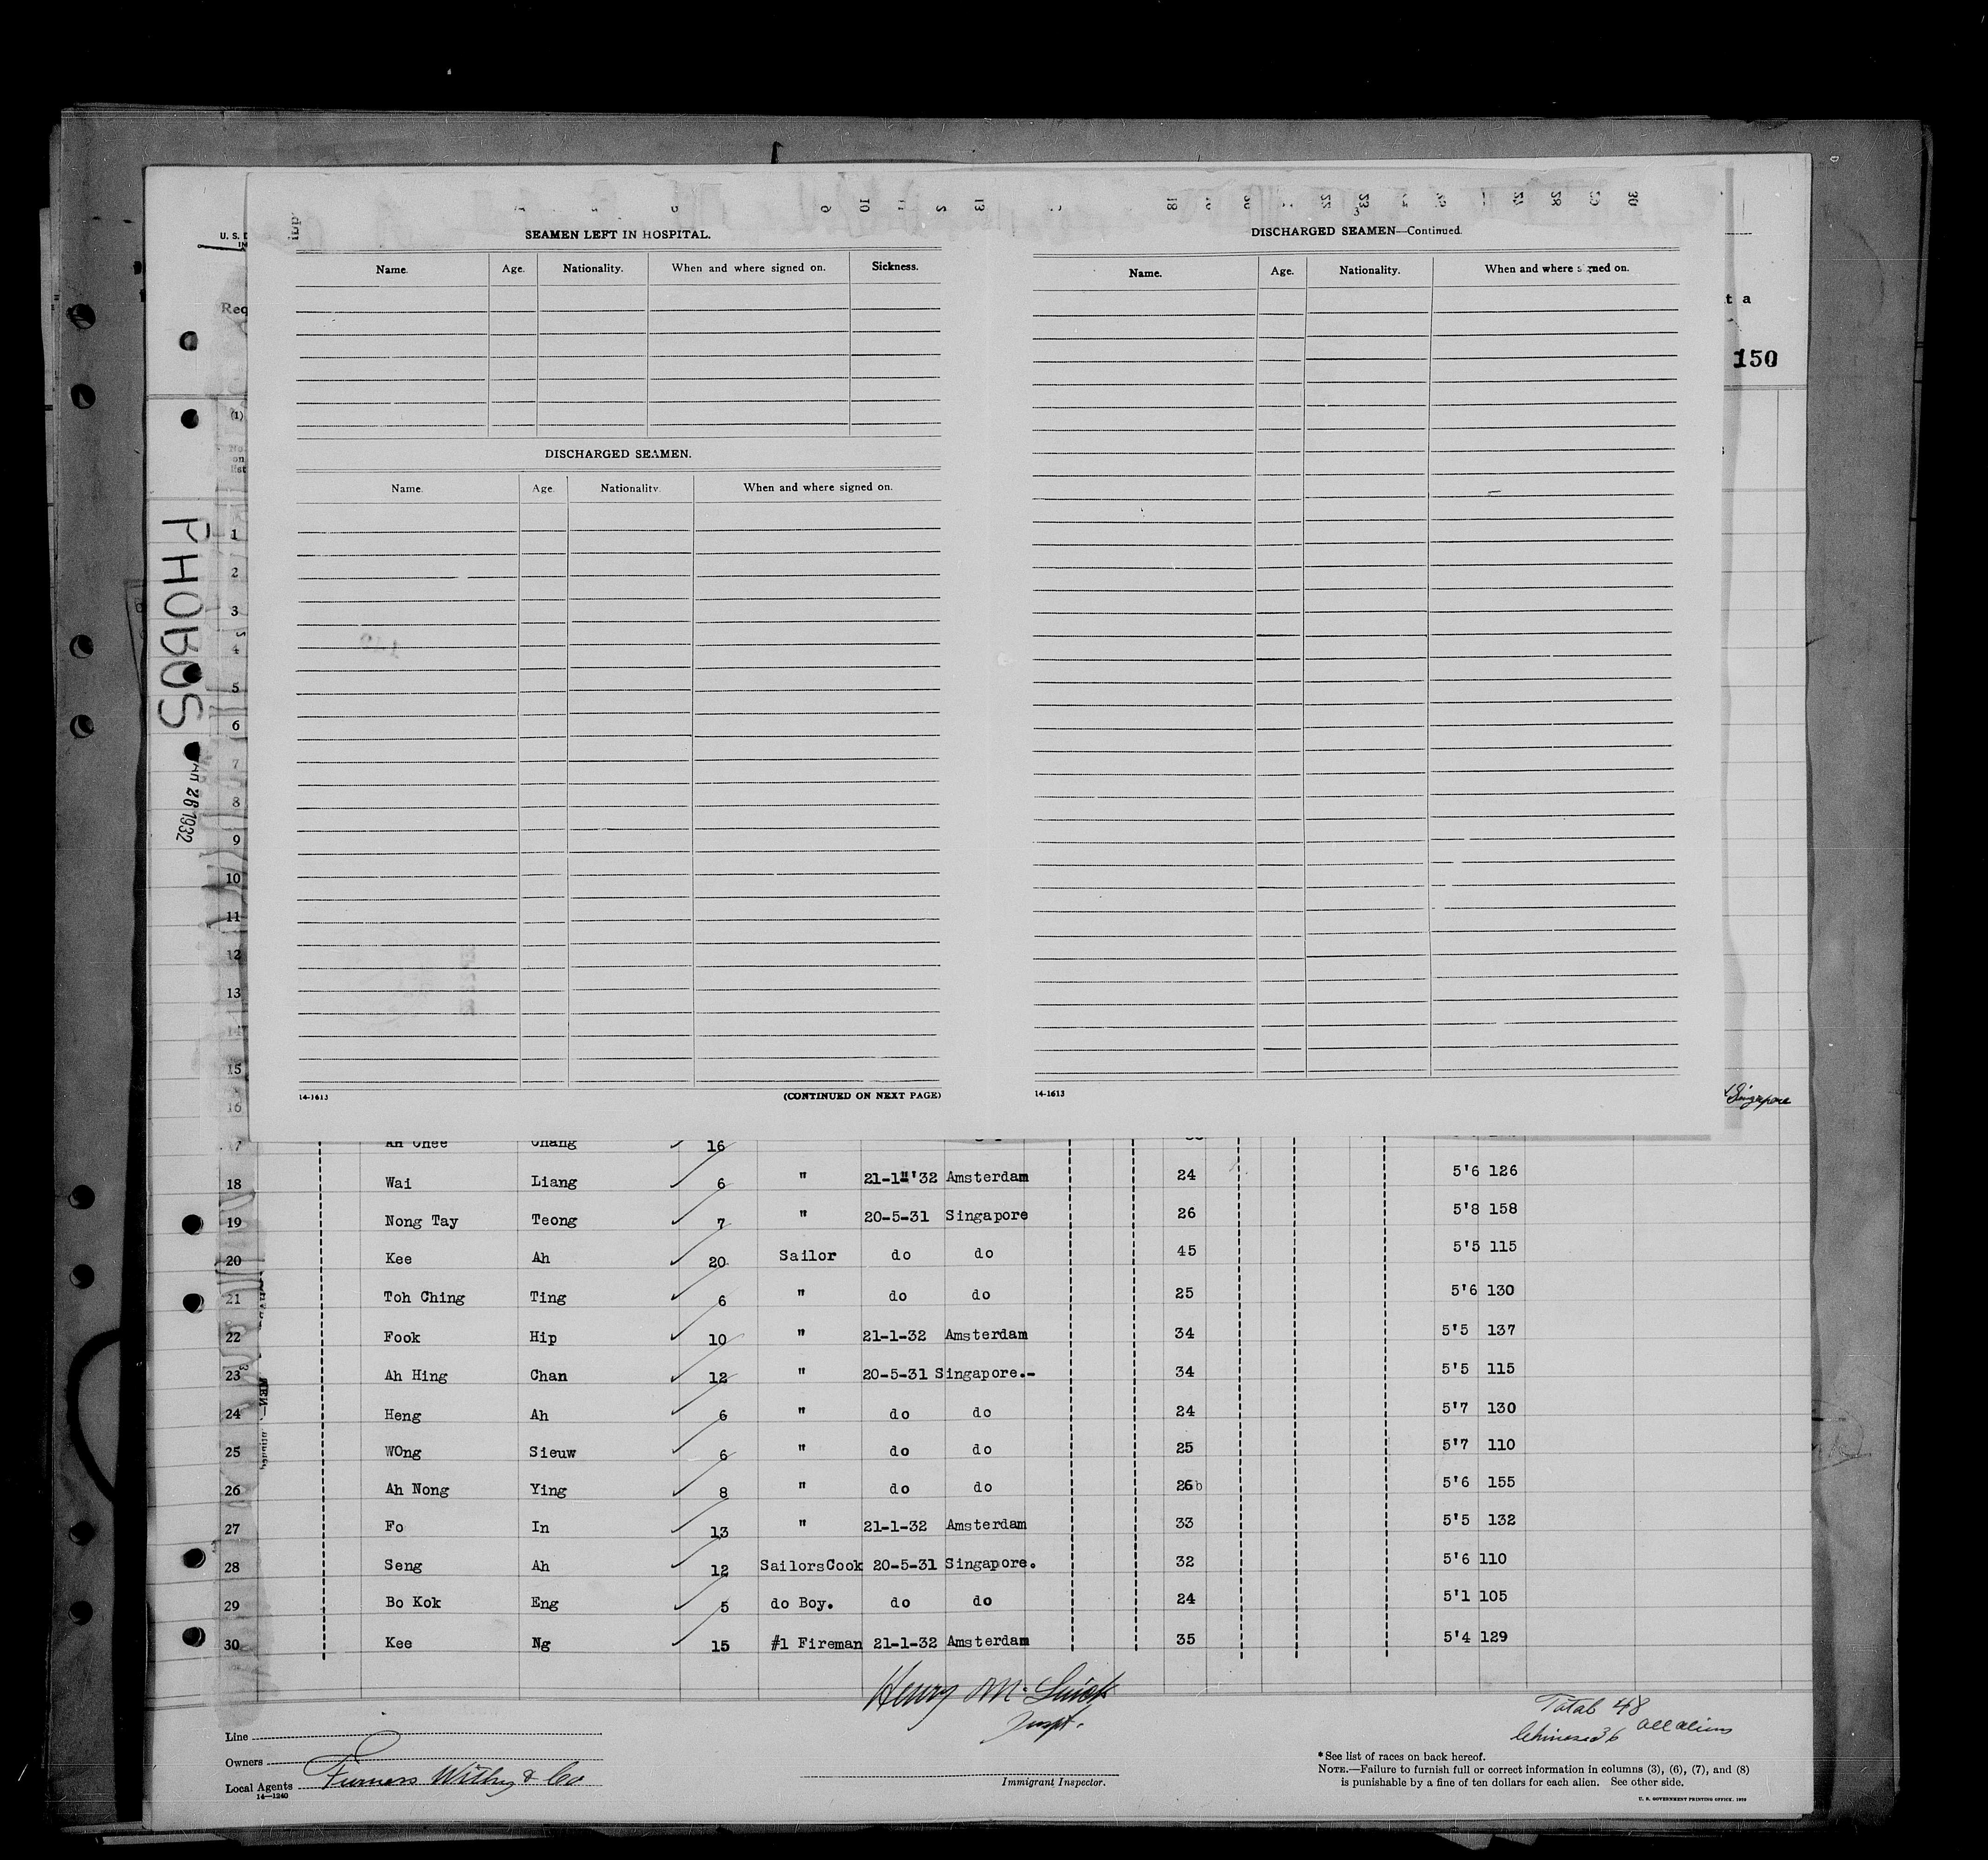 U. S. D
IM
Req
t a
150
(1)
No.
on
list
PHOBOS
26 1932
SEAMEN LEFT IN HOSPITAL.
Name. Age. Nationality. When and where signed on. Sickness.
DISCHARGED SEAMEN.
Name. Age. Nationality. When and where signed on.
14-1613 (CONTINUED ON NEXT PAGE)
DISCHARGED SEAMEN—Continued.
Name. Age. Nationality. When and where signed on.
14-1613
1
2
3
4
5
6
7
8
9
10
11
12
13
14
15
16 Singapore
17 Ah Chee Chang 16
18 Wai Liang 6 " 21-1-'32 Amsterdam 24 5'6 126
19 Nong Tay Teong 7 " 20-5-31 Singapore 26 5'8 158
20 Kee Ah 20 Sailor do do 45 5'5 115
21 Toh Ching Ting 6 " do do 25 5'6 130
22 Fook Hip 10 " 21-1-32 Amsterdam 34 5'5 137
23 Ah Hing Chan 12 " 20-5-31 Singapore.- 34 5'5 115
24 Heng Ah 6 " do do 24 5'7 130
25 WOng Sieuw 6 " do do 25 5'7 110
26 Ah Nong Ying 8 " do do 26 5'6 155
27 Fo In 13 " 21-1-32 Amsterdam 33 5'5 132
28 Seng Ah 12 SailorsCook 20-5-31 Singapore. 32 5'6 110
29 Bo Kok Eng 5 do Boy. do do 24 5'1 105
30 Kee Ng 15 #1 Fireman 21-1-32 Amsterdam 35 5'4 129
Henry M.
Inspt.
Immigrant Inspector.
Total 48 all aliens
Chinese 36
Line
Owners
Local Agents Furness Withy & Co
14—1240
* See list of races on back hereof.
NOTE.—Failure to furnish full or correct information in columns (3), (6), (7), and (8)
is punishable by a fine of ten dollars for each alien. See other side.
U. S. GOVERNMENT PRINTING OFFICE.